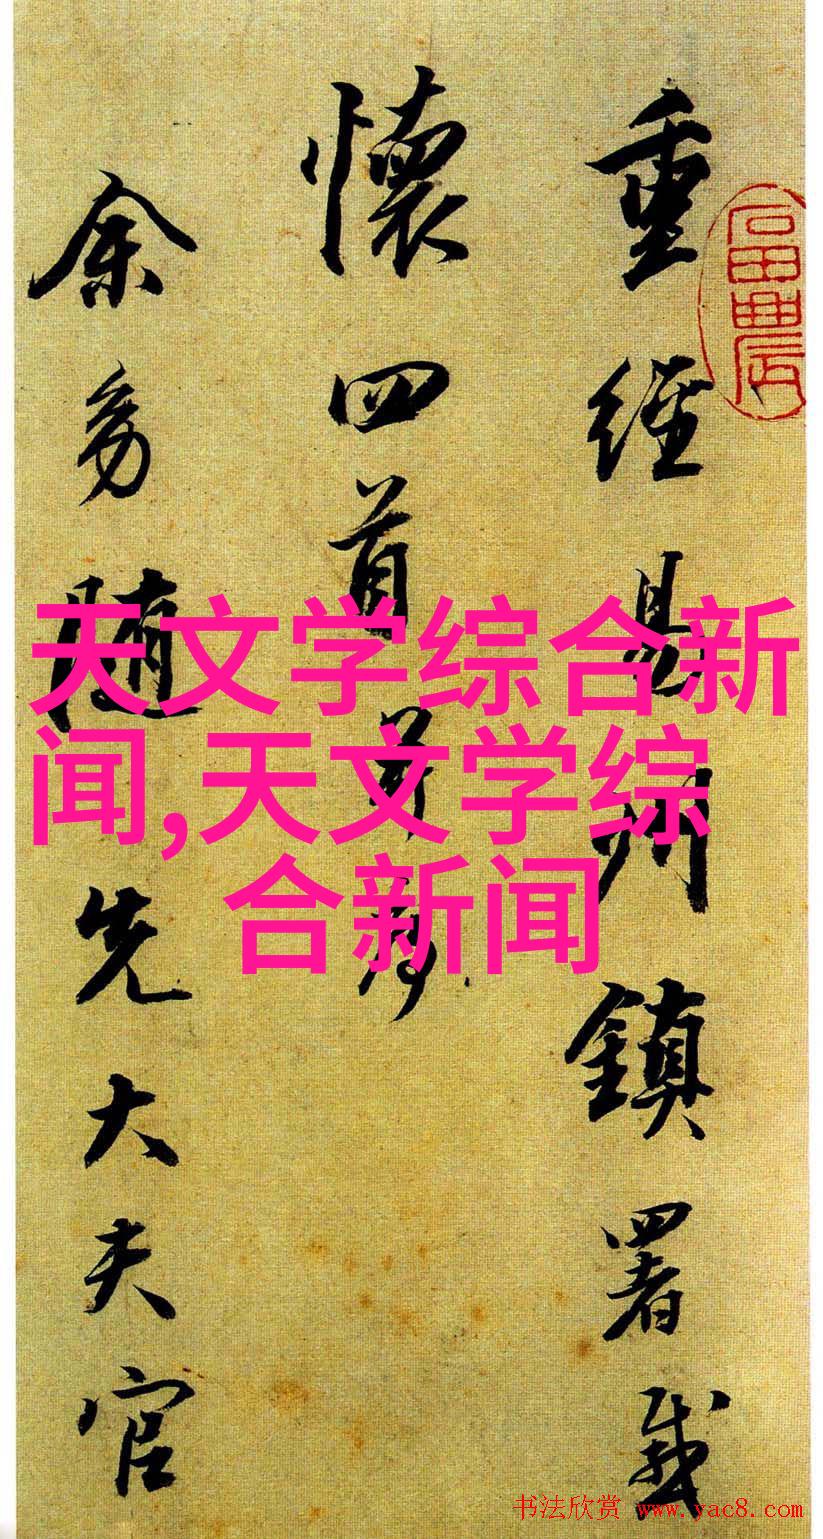 重經易州鎮署感
懷四首并序
余幼隨先大夫官
天文学综合新
闻,天文学综
合新闻
书法欣赏 www.yac8.com